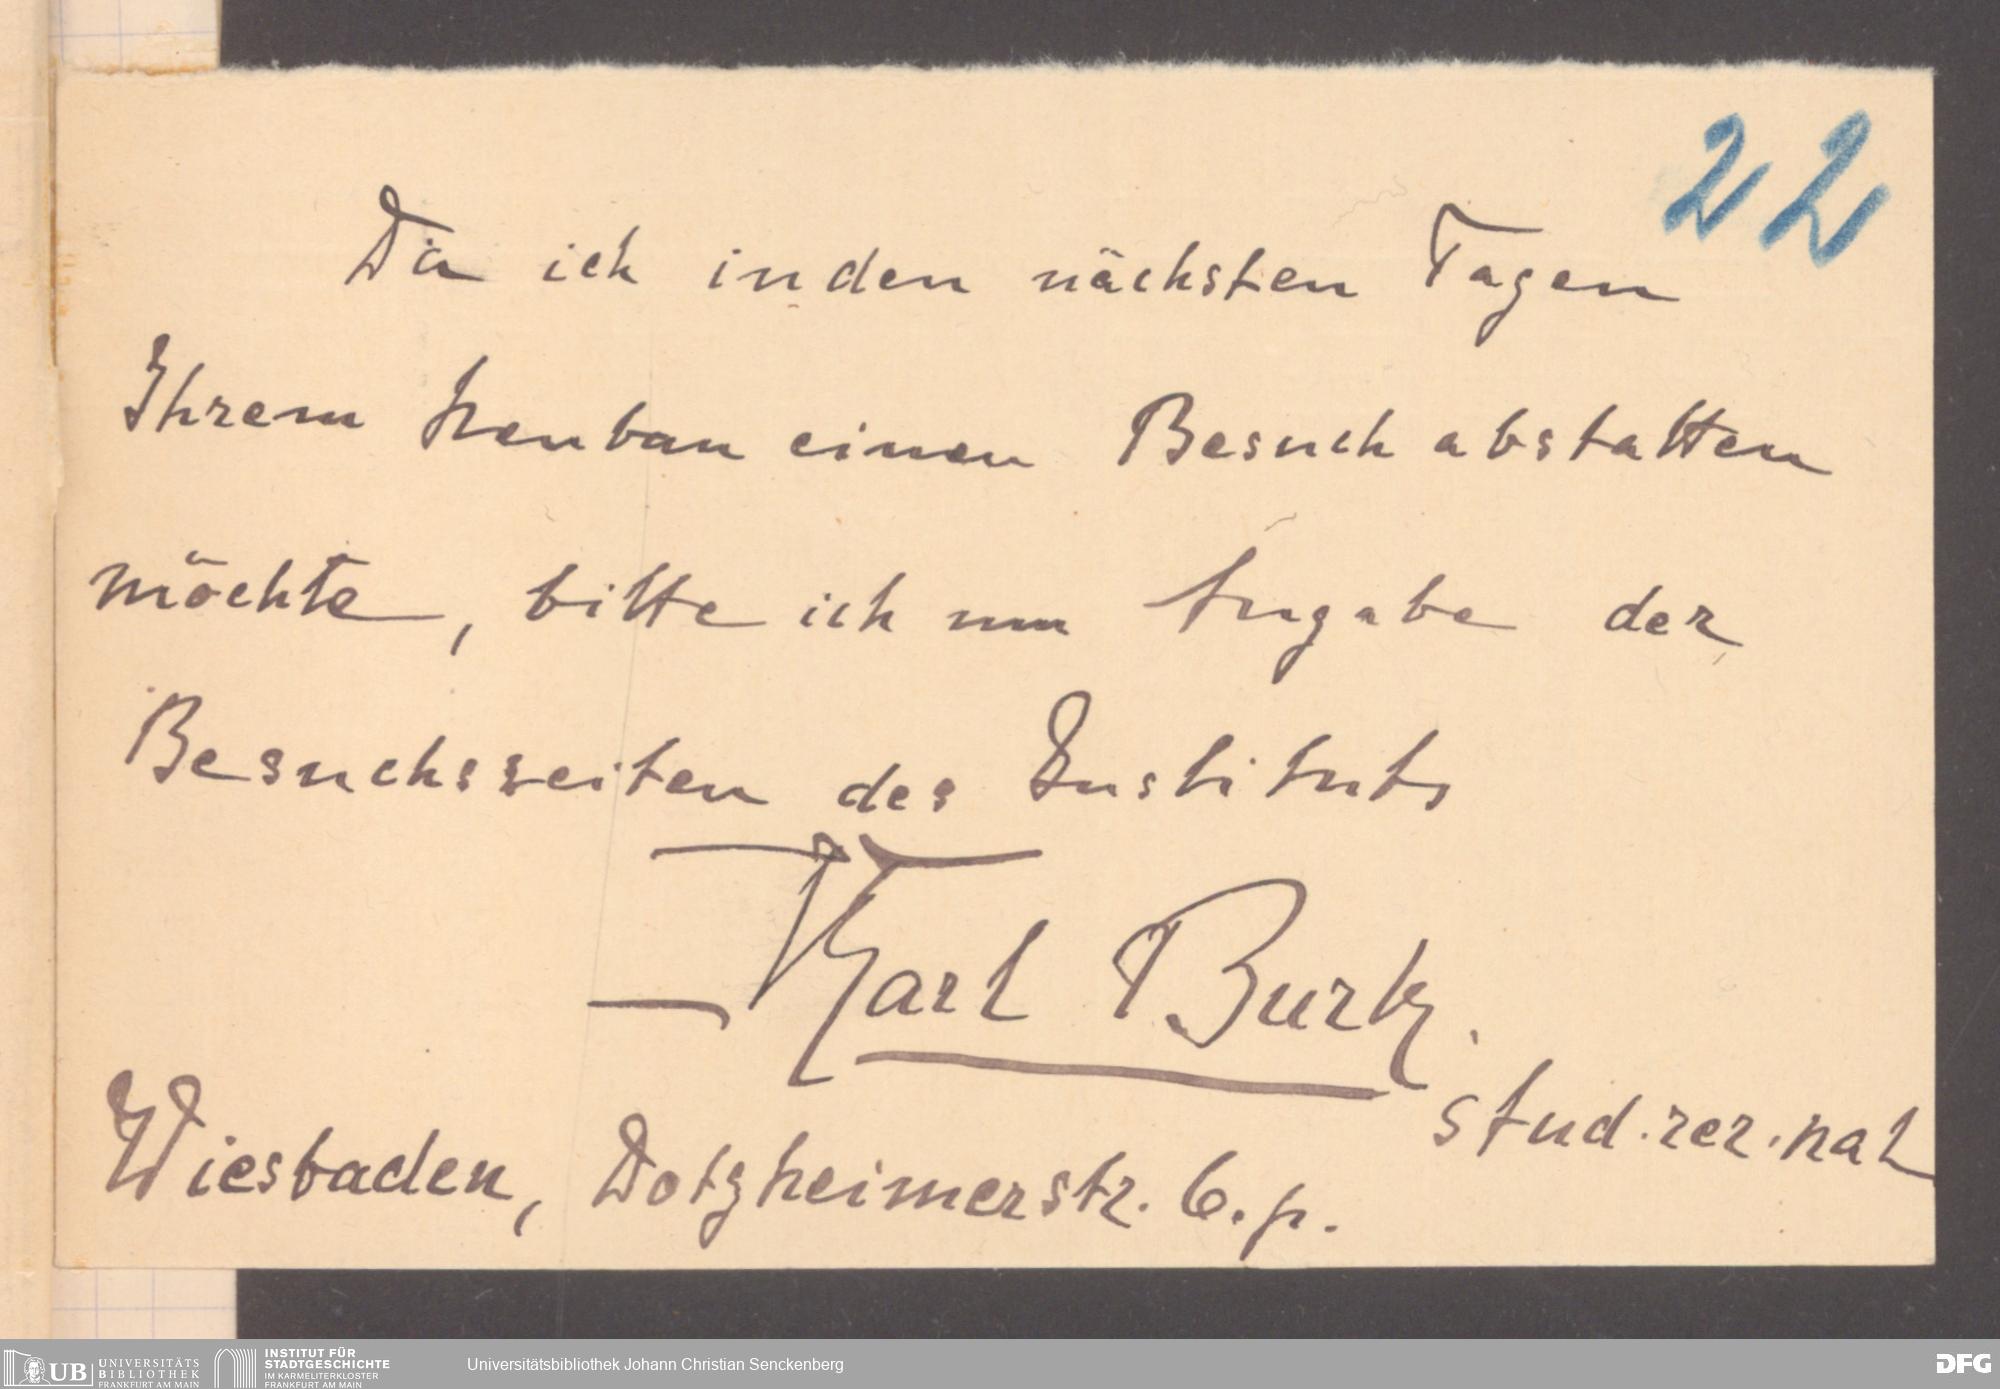 22
Da ich in den nächsten Tagen
Ihrem Neubau einen Besuch abstatten
möchte, bitte ich um Angabe der
Besuchszeiten des Instituts
Karl Burk.
stud. rer. nat
Wiesbaden, Dotzheimerstr. 6. p.
UB UNIVERSITÄTS BIBLIOTHEK FRANKFURT AM MAIN
INSTITUT FÜR STADTGESCHICHTE IM KARMELITERKLOSTER FRANKFURT AM MAIN
Universitätsbibliothek Johann Christian Senckenberg
DFG